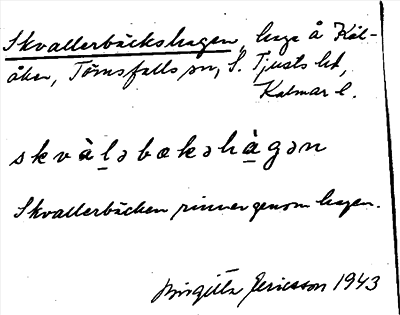 Skvallerbäckshagen, hage å Kål-
åker, Törnsfalls sn, S. Tjusts hd,
Kalmar l.
skvàl̠əbækəhà̠gən
Skvallerbäcken rinner genom hagen.
Birgitta Ericsson 1943